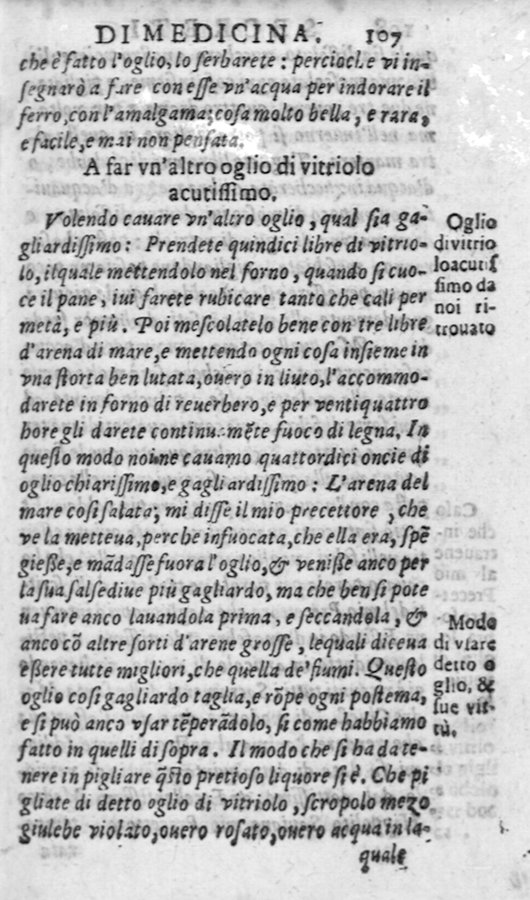 DI MEDICINA. 107
che è fatto l'oglio, lo serbarete: percioche vi in-
segnarò a fare con esse vn'acqua per indorare il
ferro, con l'amalgama; cosa molto bella, e rara,
e facile, e mai non pensata.
A far vn'altro oglio di vitriolo
acutissimo.
Volendo cauare vn'altro oglio, qual sia ga-
gliardissimo: Prendete quindici libre di vitrio-
lo, il quale mettendolo nel forno, quando si cuo-
ce il pane, iui farete rubicare tanto che cali per
metà, e più. Poi mescolatelo bene con tre libre
d'arena di mare, e mettendo ogni cosa insieme in
vna storta ben lutata, ouero in liuto, l'accommo-
darete in forno di reuerbero, e per ventiquattro
hore gli darete continuamẽte fuoco di legna. In
questo modo noi ne cauamo quattordici oncie di
oglio chiarissimo, e gagliardissimo: L'arena del
mare cosi salata; mi disse il mio precettore, che
ve la metteua, perche infuocata, che ella era, spẽ
giesse, e mãdasse fuora l'oglio, & venisse anco per
la sua salsedine più gagliardo, ma che ben si pote
ua fare anco lauandola prima, e seccandola, &
anco cõ altre sorti d'arene grosse, lequali diceua
essere tutte migliori, che quella de' fiumi. Questo
oglio cosi gagliardo taglia, e rõpe ogni postema,
e si può anco vsar tẽperãdolo, si come habbiamo
fatto in quelli di sopra. Il modo che si ha da te-
nere in pigliare q̃sto pretioso liquore si è. Che pi
gliate di detto oglio di vitriolo, scropolo mezo
giulebe violato, ouero rosato, ouero acqua in la-
quale
Oglio
di vitrio
lo acutis
simo da
noi ri-
trouato
Modo
di vsare
detto o
glio, &
sue vir-
tù.